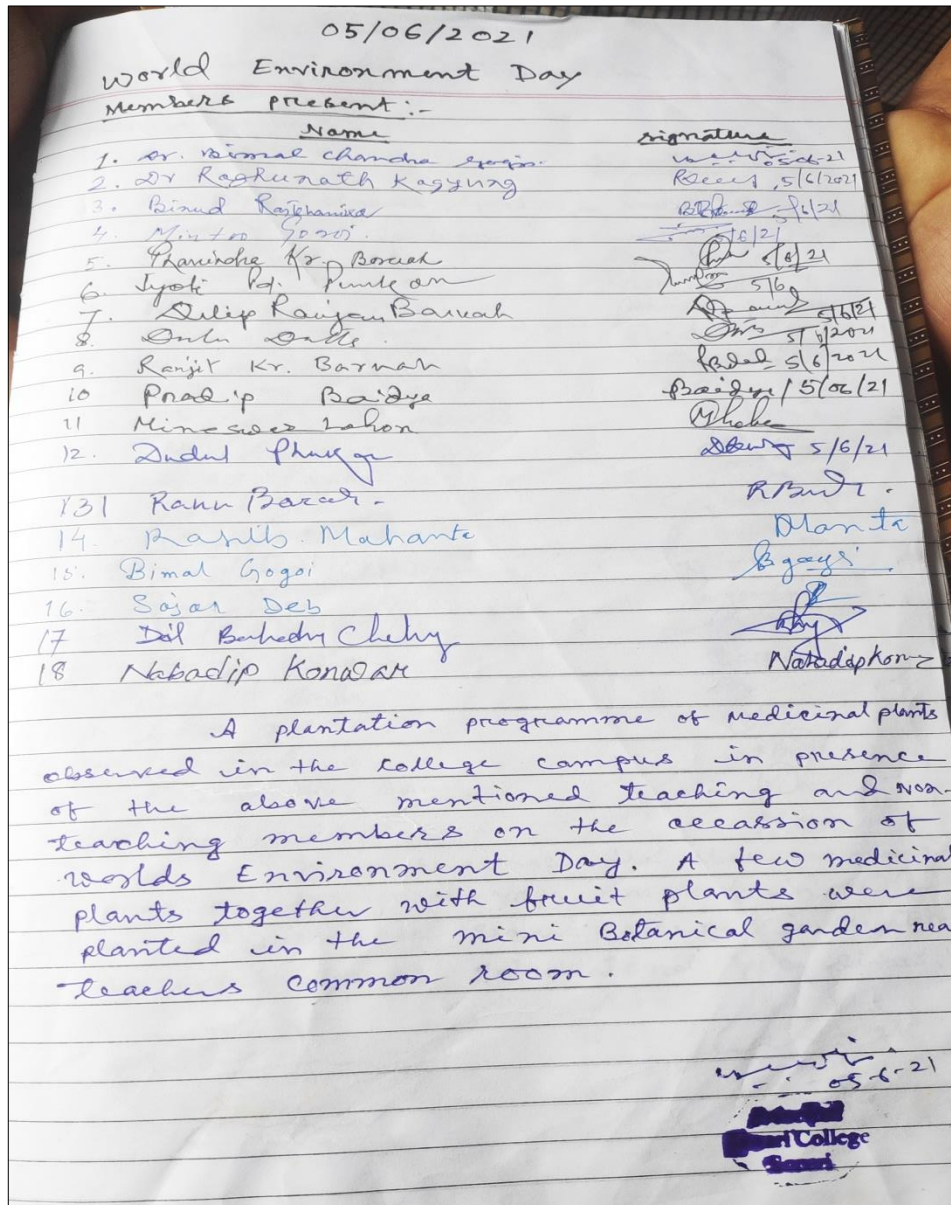 05/06/2021
World Environment Day
Members present :-
Name signature
1. Dr. Bimal Chandra 05-6-21
2. Dr Raghunath Kagyung 5/6/2021
3. Binud Rajkhowa 5/6/21
4. Mintoo Gogoi. 5/6/21
5. Kr. Borah 5/6/21
6. Jyoti Pd. Phukan 5/6
7. Dilip Ranjan Baruah 5/6/21
8. Dutta. 5/6/2021
9. Ranjit Kr. Baruah 5/6/2021
10 Pradip Baidya Baidya / 5/06/21
11 Mineswar Lahon
12. Dudul 5/6/21
13| Ranu Borah -
14. Mahanta
15. Bimal Gogoi
16. Sajan Deb
17 Dil Bahadur Chetry
18 Nabadip Konwar Nabadip Kon
A plantation programme of medicinal plants
observed in the college campus in presence
of the above mentioned teaching and non-
teaching members on the occassion of
worlds Environment Day. A few medicinal
plants together with fruit plants were
planted in the mini Botanical garden nea
teachers common room.
05-6-21
Principal
College